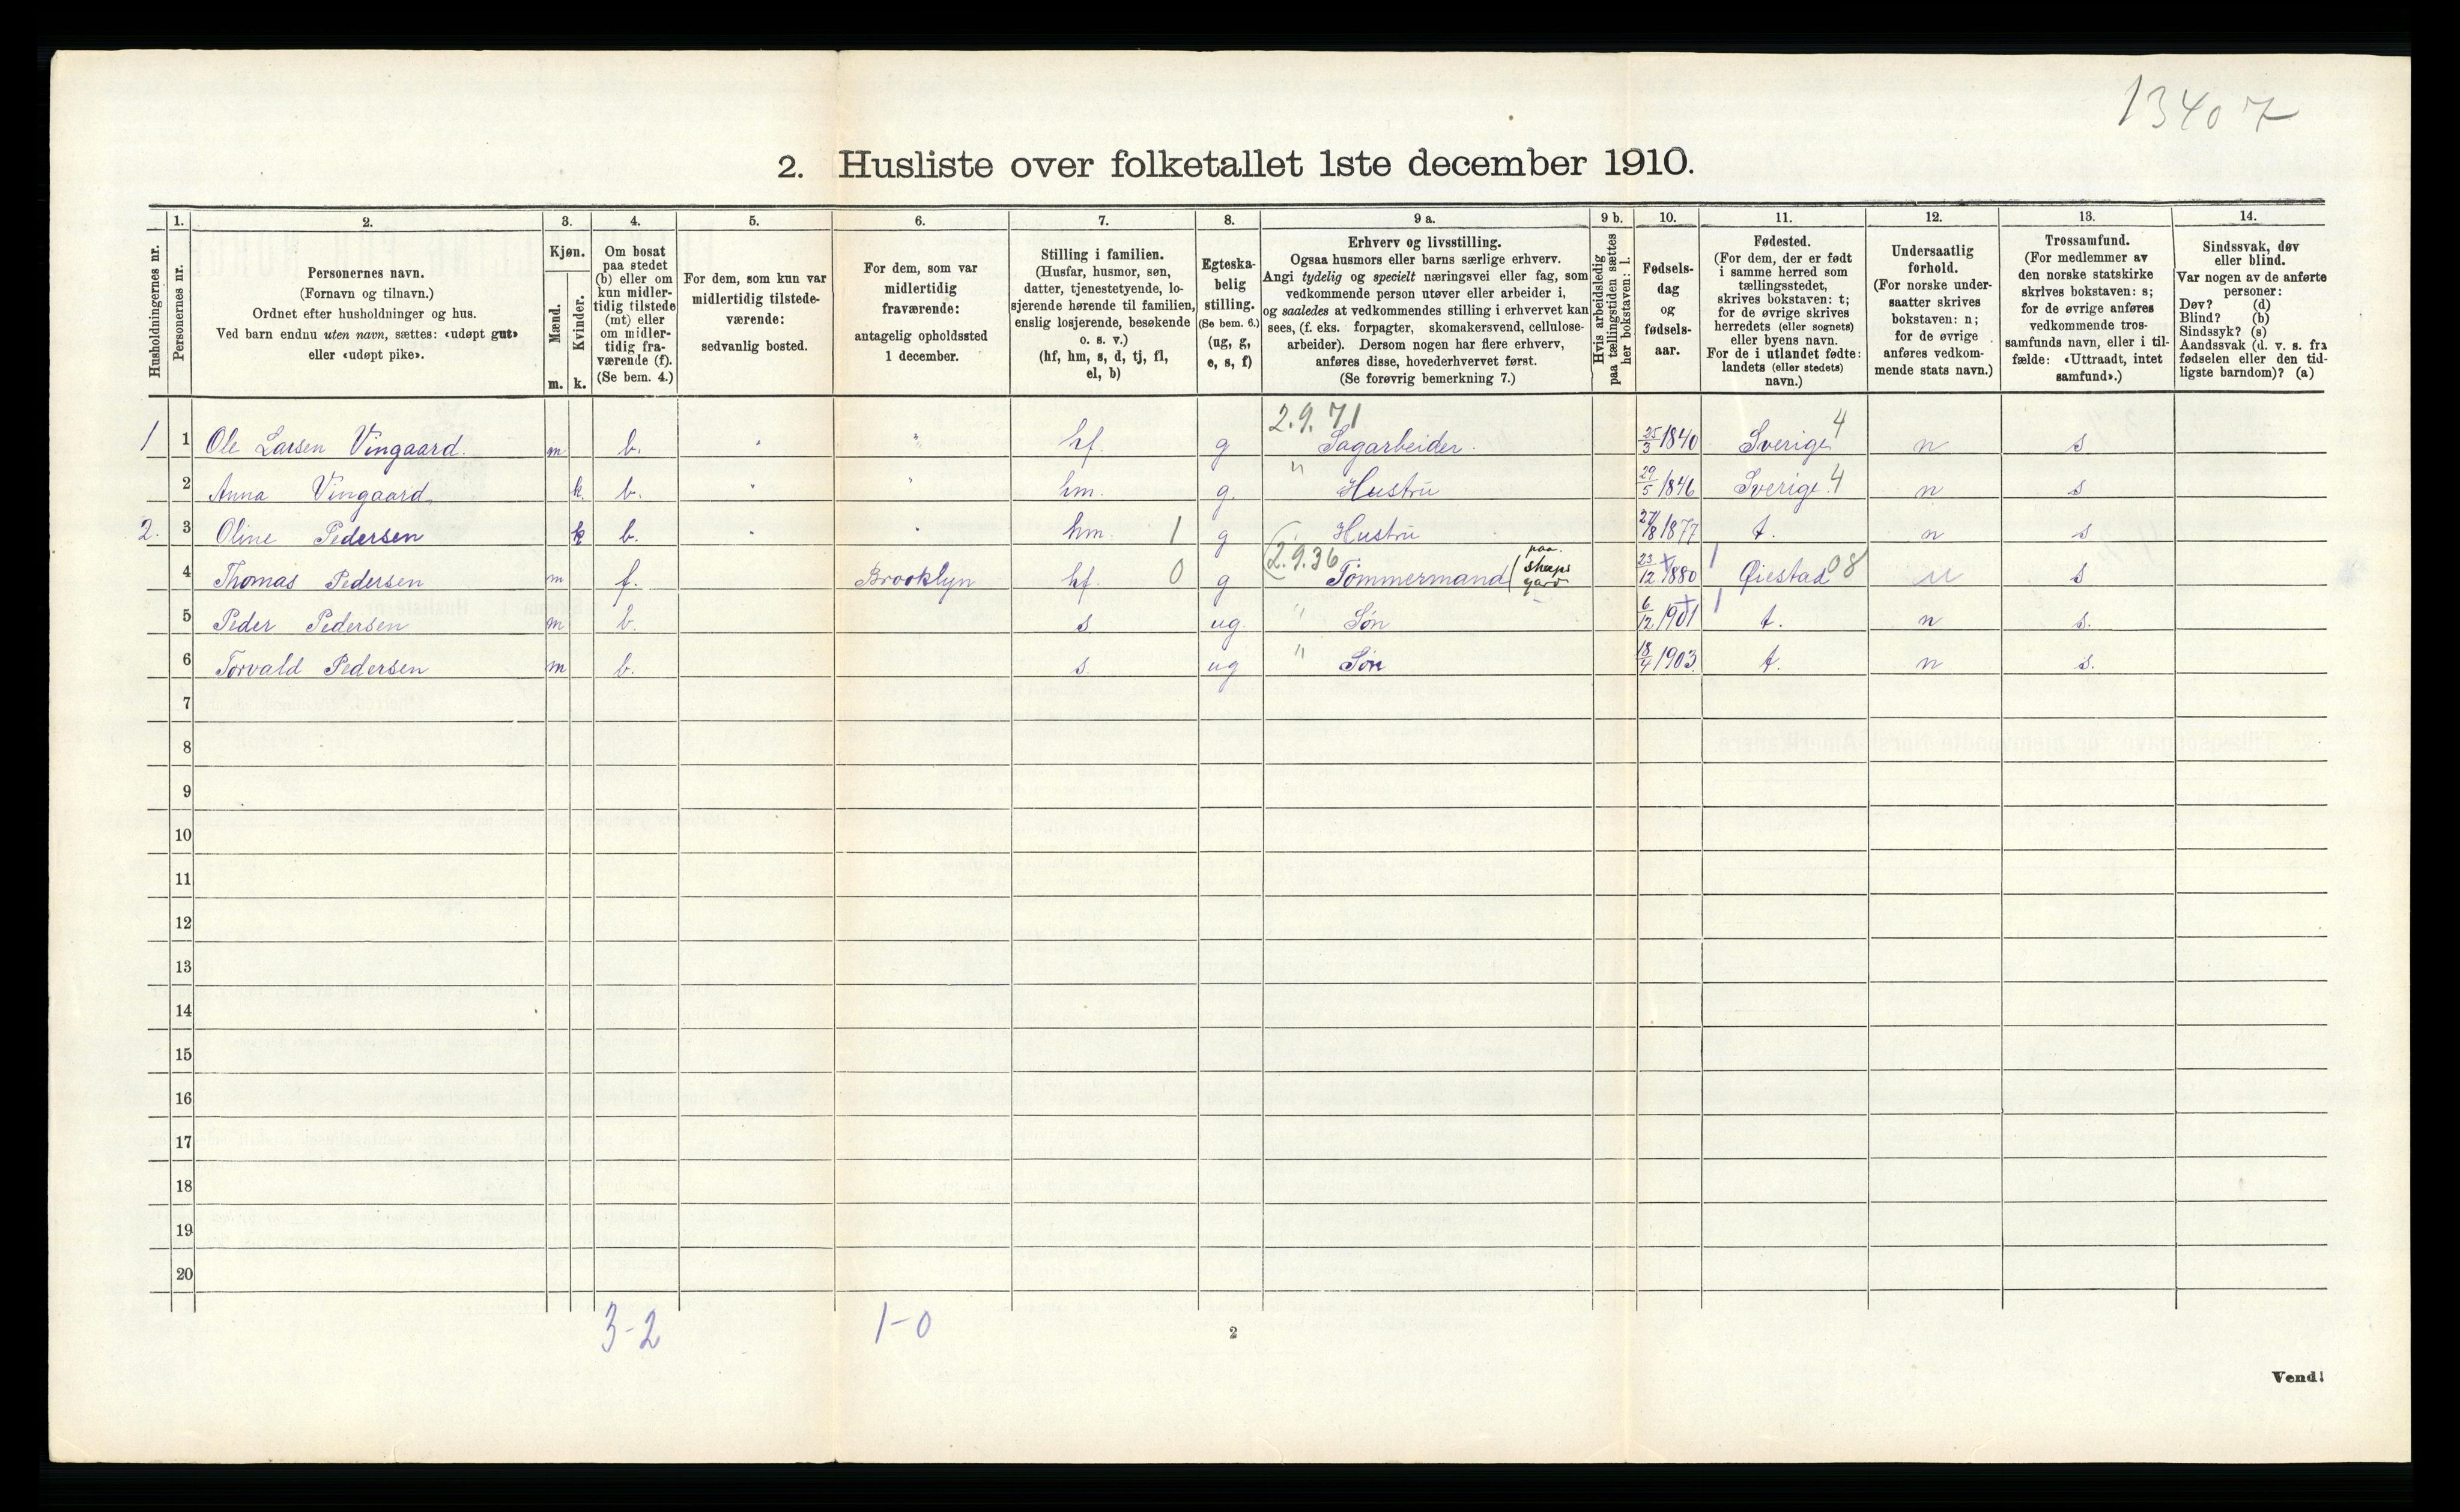 13407
2. Husliste over folketallet 1ste december 1910.
Husholdningernes nr.
1. Personernes nr.
2. Personernes navn.
(Fornavn og tilnavn.)
Ordnet efter husholdninger og hus.
Ved barn endnu uten navn, sættes: «udøpt gut»
eller «udøpt pike».
3. Kjøn.
Mænd. m.
Kvinder. k.
4. Om bosat
paa stedet
(b) eller om
kun midler-
tidig tilstede
(mt) eller
om midler-
tidig fra-
værende (f).
(Se bem. 4.)
5. For dem, som kun var
midlertidig tilstede-
værende:
sedvanlig bosted.
6. For dem, som var
midlertidig
fraværende:
antagelig opholdssted
1 december.
7. Stilling i familien.
(Husfar, husmor, søn,
datter, tjenestetyende, lo-
sjerende hørende til familien,
enslig losjerende, besøkende
o. s. v.)
(hf, hm, s, d, tj, fl,
el, b)
8. Egteska-
belig
stilling.
(Se bem. 6.)
(ug, g,
e, s, f)
9 a. Erhverv og livsstilling.
Ogsaa husmors eller barns særlige erhverv.
Angi tydelig og specielt næringsvei eller fag, som
vedkommende person utøver eller arbeider i,
og saaledes at vedkommendes stilling i erhvervet kan
sees, (f. eks. forpagter, skomakersvend, cellulose-
arbeider). Dersom nogen har flere erhverv,
anføres disse, hovederhvervet først.
(Se forøvrig bemerkning 7.)
9 b. Hvis arbeidsledig
paa tællingstiden sættes
her bokstaven: l.
10. Fødsels-
dag
og
fødsels-
aar.
11. Fødested.
(For dem, der er født
i samme herred som
tællingsstedet,
skrives bokstaven: t;
for de øvrige skrives
herredets (eller sognets)
eller byens navn.
For de i utlandet fødte:
landets (eller stedets)
navn.)
12. Undersaatlig
forhold.
(For norske under-
saatter skrives
bokstaven: n;
for de øvrige
anføres vedkom-
mende stats navn.)
13. Trossamfund.
(For medlemmer av
den norske statskirke
skrives bokstaven: s;
for de øvrige anføres
vedkommende tros-
samfunds navn, eller i til-
fælde: «Uttraadt, intet
samfund».)
14. Sindssvak, døv
eller blind.
Var nogen av de anførte
personer:
Døv? (d)
Blind? (b)
Sindssyk? (s)
Aandssvak (d. v. s. fra
fødselen eller den tid-
ligste barndom)? (a)
2.9.71
1 1 Ole Larsen Vingaard. m b. " " hf. g Sagarbeider. 25/3 1840 Sverige 4 n s
2 Anna Vingaard k. b. " " hm. g. " Hustru 29/5 1846 Sverige. 4 n s
2. 3 Oline Pedersen k b. " " hm 1 g Hustru 27/8 1877 t. n s
(2.9.36
4 Thomas Pedersen m f. Brooklyn hf. 0 g Tømmermand (paa
sheeps
yard 23/12 1880 Øiestad 08 n s
5 Peder Pedersen m b. s ug. " Søn 6/12 1901 t. n s.
6 Torvald Pedersen m b. s. ug " Søn 18/4 1903. t. n s.
7
8
9
10
11
12
13
14
15
16
17
18
19
20
3-2 1-0
2
Vend!